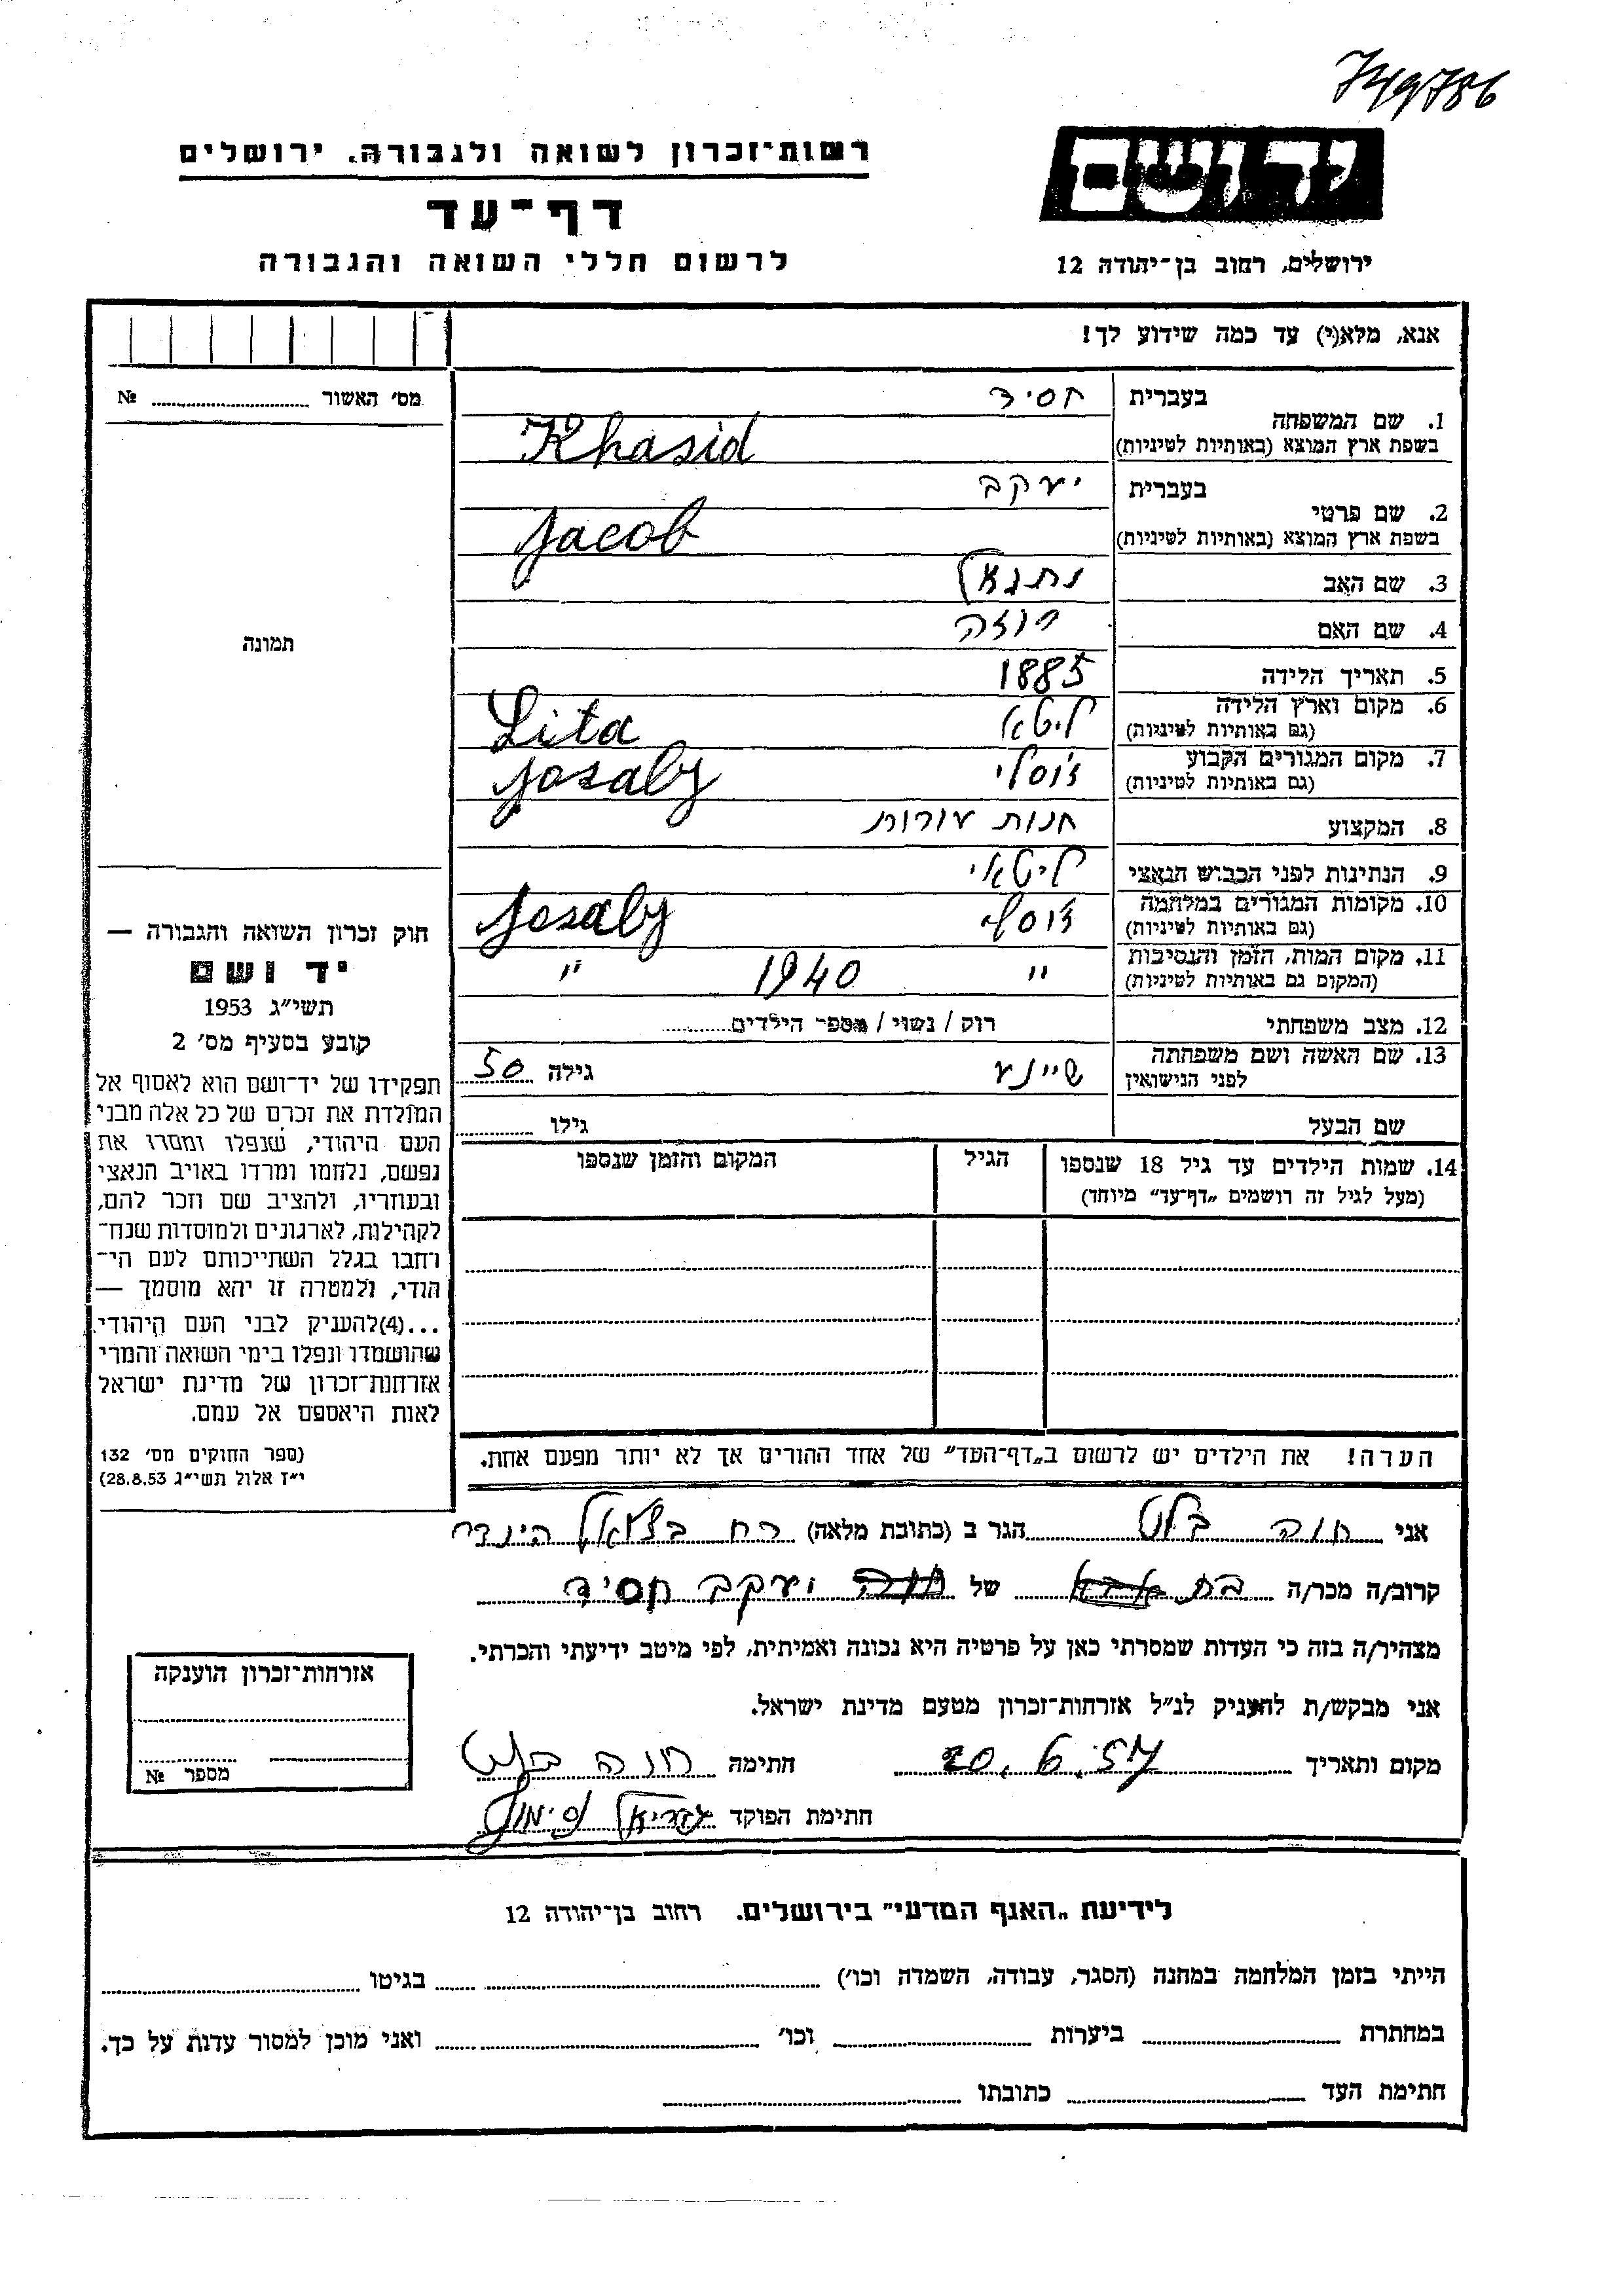 749786
רשות־זכרון לשואה ולגבורה, ירושלים
יד ושם
דף־עד
לרשום חללי השואה והגבורה
ירושלים, רחוב בן־יהודה 12
אנא, מלא(י) עד כמה שידוע לך!
מס׳ האשור № 
1. שם המשפחה בעברית חסיד
בשפת ארץ המוצא (באותיות לטיניות) Khasid
2. שם פרטי בעברית יעקב
בשפת ארץ המוצא (באותיות לטיניות) Jacob
3. שם האב נתנאל
4. שם האם רוזה
5. תאריך הלידה 1885
6. מקום וארץ הלידה ליטא Lita
(גם באותיות לטיניות)
7. מקום המגורים הקבוע
(גם באותיות לטיניות)
8. המקצוע חנות עורות
9. הנתינות לפני הכבוש הנאצי ליטאי
10. מקומות המגורים במלחמה
(גם באותיות לטיניות)
11. מקום המות, הזמן והנסיבות " 1940 "
(המקום גם באותיות לטיניות)
12. מצב משפחתי רוק / נשוי / מספר הילדים
13. שם האשה ושם משפחתה גילה 50
לפני הנישואין
שם הבעל גילו
14. שמות הילדים עד גיל 18 שנספו הגיל המקום והזמן שנספו
(מעל לגיל זה רושמים „דף־עד” מיוחד)
הערה! את הילדים יש לרשום ב„דף־העד” של אחד ההורים אך לא יותר מפעם אחת.
תמונה
חוק זכרון השואה והגבורה —
יד ושם
תשי״ג 1953
קובע בסעיף מס׳ 2
תפקידו של יד־ושם הוא לאסוף אל
המולדת את זכרם של כל אלה מבני
העם היהודי, שנפלו ומסרו את
נפשם, נלחמו ומרדו באויב הנאצי
ובעוזריו, ולהציב שם וזכר להם,
לקהילות, לארגונים ולמוסדות שנח־
רחבו בגלל השתייכותם לעם הי־
הודי, ולמטרה זו יהא מוסמך —
...(4)להעניק לבני העם היהודי
שהושמדו ונפלו בימי השואה והמרי
אזרחות־זכרון של מדינת ישראל
לאות היאספם אל עמם.
(ספר החוקים מס׳ 132
י״ז אלול תשי״ג 28.8.53)
אני חוה הגר ב (כתובת מלאה) רח בצלאל
קרוב/ה מכר/ה בת של יעקב חסיד
מצהיר/ה בזה כי העדות שמסרתי כאן על פרטיה היא נכונה ואמיתית, לפי מיטב ידיעתי והכרתי.
אני מבקש/ת להעניק לנ״ל אזרחות־זכרון מטעם מדינת ישראל.
מקום ותאריך 20.6.57 חתימה
חתימת הפוקד
אזרחות־זכרון הוענקה
מספר №
לידיעת „האגף המדעי” בירושלים. רחוב בן־יהודה 12
הייתי בזמן המלחמה במחנה (הסגר, עבודה, השמדה וכו׳) בגיטו
במחתרת ביערות וכו׳ ואני מוכן למסור עדות על כך.
חתימת העד כתובתו